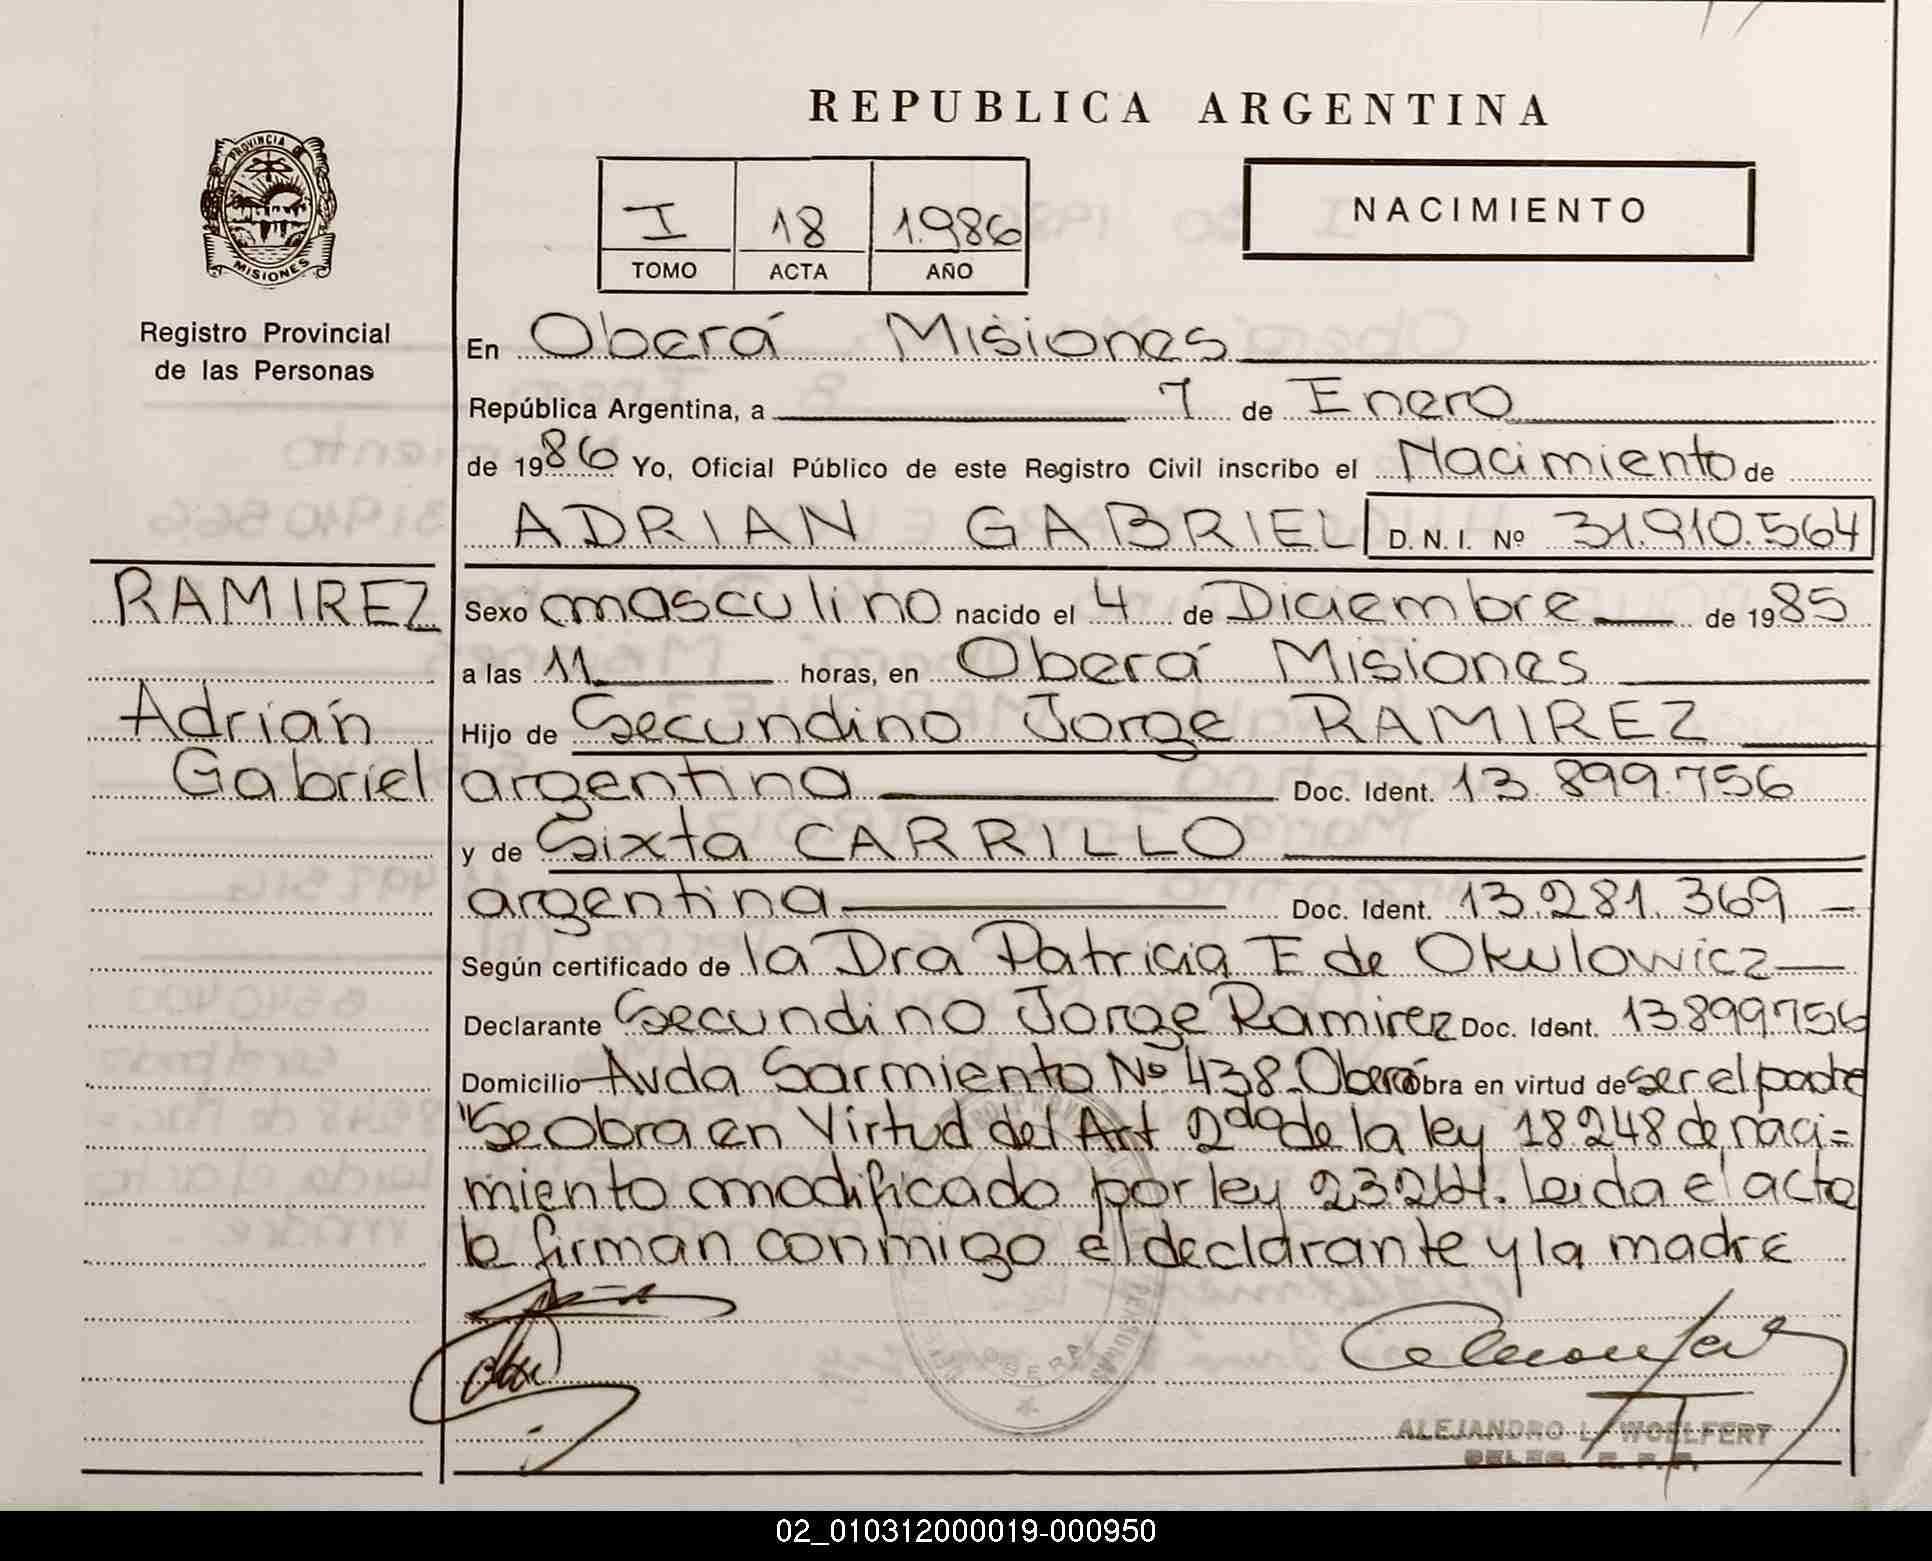 REPUBLICA ARGENTINA
PROVINCIA DE
MISIONES
Registro Provincial
de las Personas
I 18 1.986
TOMO ACTA AÑO
NACIMIENTO
En Oberá Misiones
República Argentina, a 7 de Enero
de 1986 Yo, Oficial Público de este Registro Civil inscribo el Nacimiento de
ADRIAN GABRIEL D. N. I. Nº 31.910.564
RAMIREZ
Adrián
Gabriel
Sexo masculino nacido el 4 de Diciembre de 1985
a las 11 horas, en Oberá Misiones
Hijo de Secundino Jorge RAMIREZ
argentina Doc. Ident. 13.899.756
y de Sixta CARRILLO
argentina Doc. Ident. 13.281.369
Según certificado de la Dra Patricia E de Okulowicz
Declarante Secundino Jorge Ramirez Doc. Ident. 13899756
Domicilio Avda Sarmiento Nº 438 Oberá obra en virtud de ser el padre
"Se Obra en Virtud del Art 2do de la ley 18.248 de naci=
miento modificado por ley 23264. Leida el acta
la firman conmigo el declarante y la madre
ALEJANDRO L. WOELFERT
02_010312000019-000950